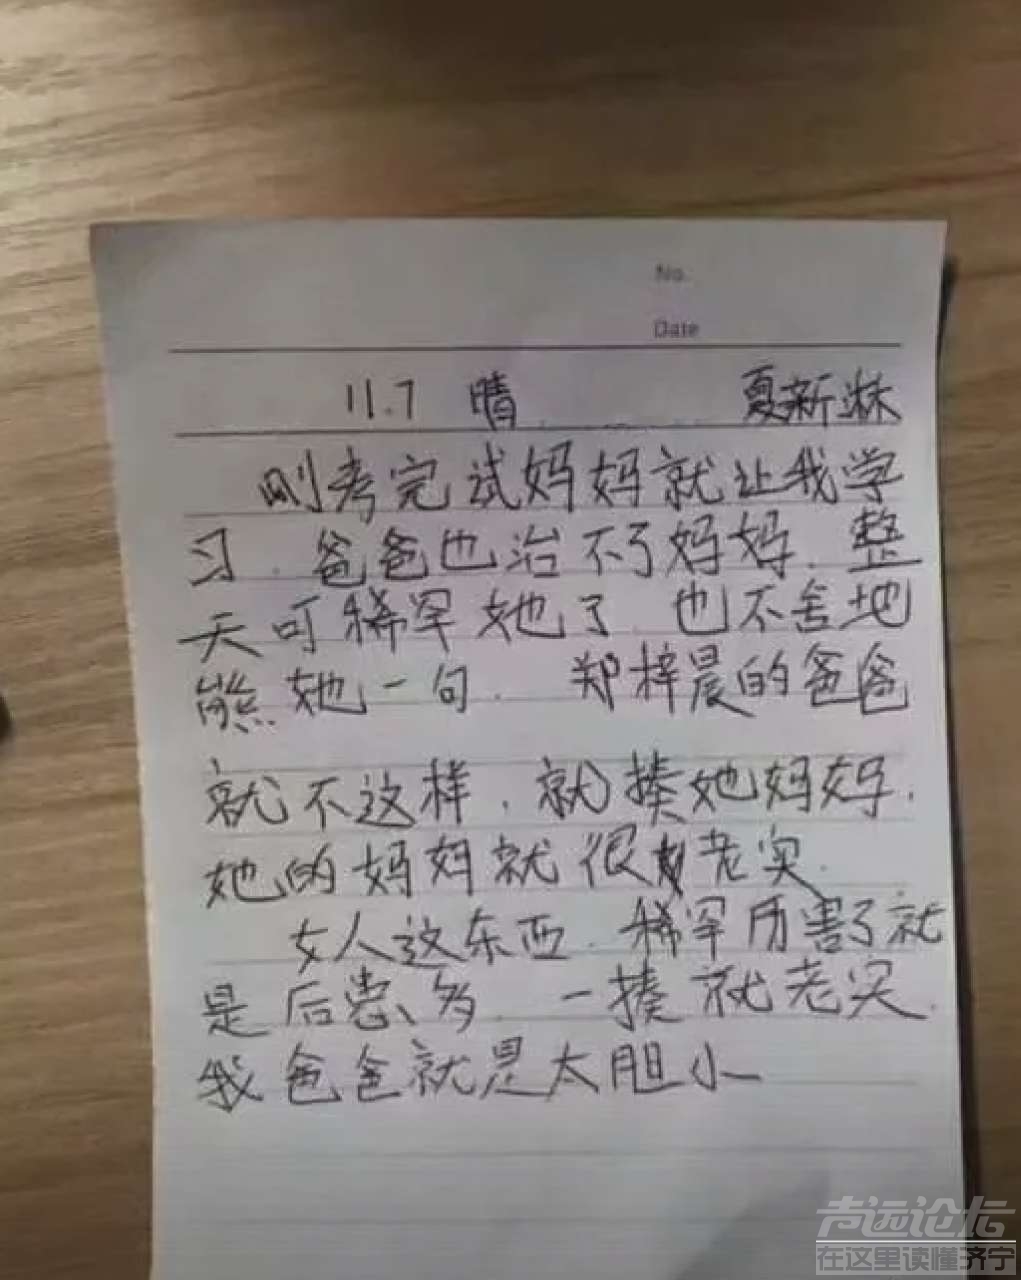 No.
Date
11.7 晴 夏新淋
刚考完试妈妈就让我学
习.爸爸也治不了妈妈.整
天可稀罕她了.也不舍地
熊她一句. 郑梓晨的爸爸
就不这样.就揍她妈妈.
她的妈妈就很老实.
女人这东西.稀罕历害了就
是后患多.一揍就老实.
我爸爸就是太胆小
声远论坛
在这里读懂济宁